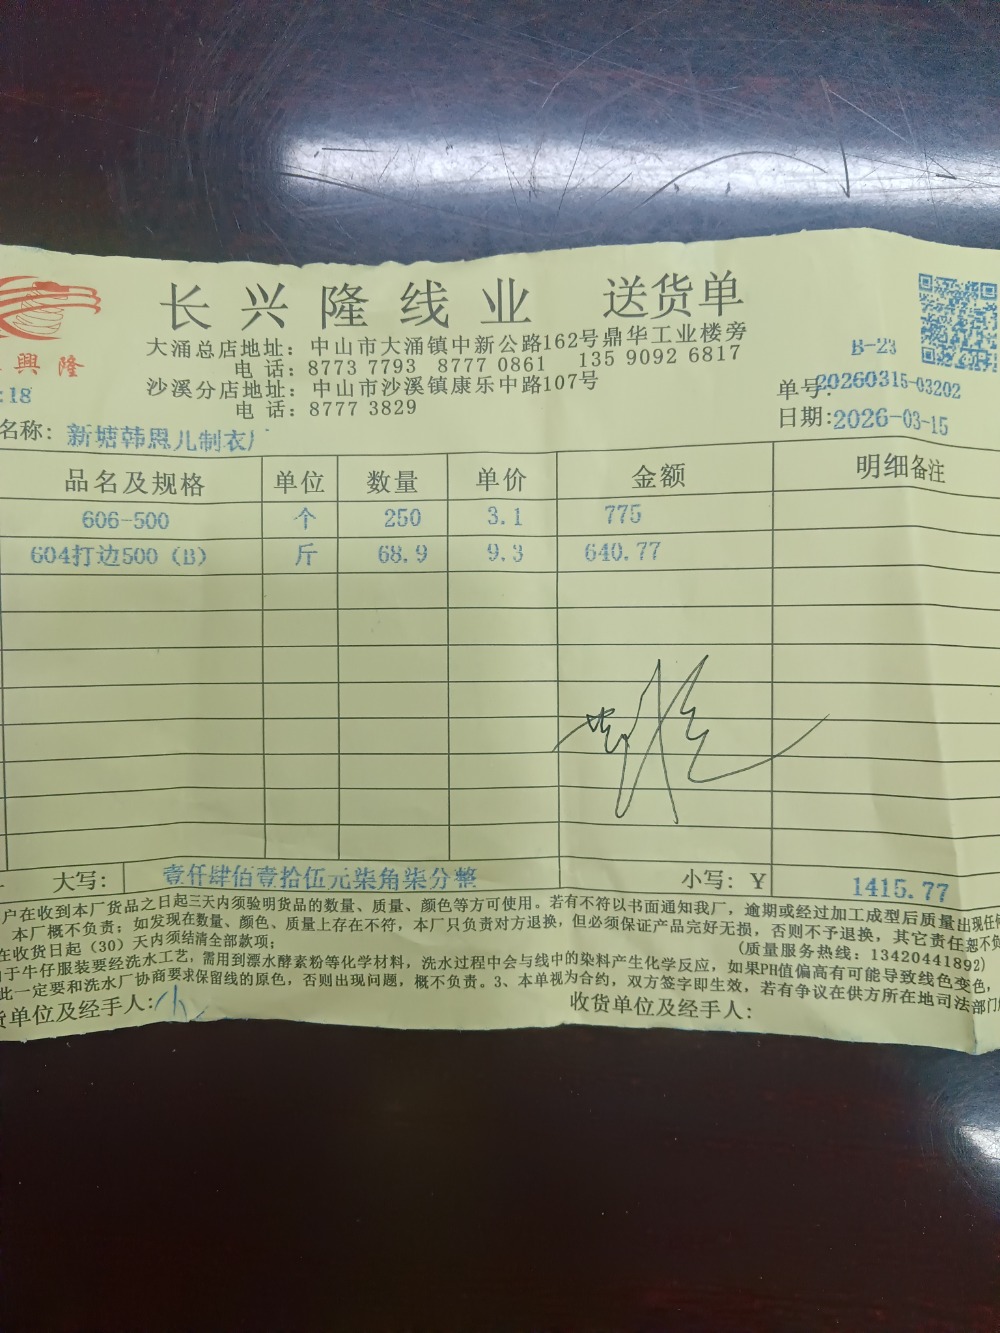 长兴隆线业 送货单
興隆
大涌总店地址：中山市大涌镇中新公路162号鼎华工业楼旁
电 话：8773 7793 8777 0861 135 9092 6817
沙溪分店地址：中山市沙溪镇康乐中路107号
电 话：8777 3829
B-23
:18
单号:20260315-03202
日期:2026-03-15
名称: 新塘韩恩儿制衣厂
品名及规格 单位 数量 单价 金额 明细备注
606-500 个 250 3.1 775
604打边500（B） 斤 68.9 9.3 640.77
大写: 壹仟肆佰壹拾伍元柒角柒分整 小写: Y 1415.77
户在收到本厂货品之日起三天内须验明货品的数量、质量、颜色等方可使用。若有不符以书面通知我厂，逾期或经过加工成型后质量出现任何
本厂概不负责；如发现在数量、颜色、质量上存在不符，本厂只负责对方退换，但必须保证产品完好无损，否则不予退换，其它责任恕不负
在收货日起（30）天内须结清全部款项； (质量服务热线：13420441892)
于牛仔服装要经洗水工艺，需用到漂水酵素粉等化学材料，洗水过程中会与线中的染料产生化学反应，如果PH值偏高有可能导致线色变色，
此一定要和洗水厂协商要求保留线的原色，否则出现问题，概不负责。3、本单视为合约，双方签字即生效，若有争议在供方所在地司法部门
货单位及经手人: 小 收货单位及经手人: